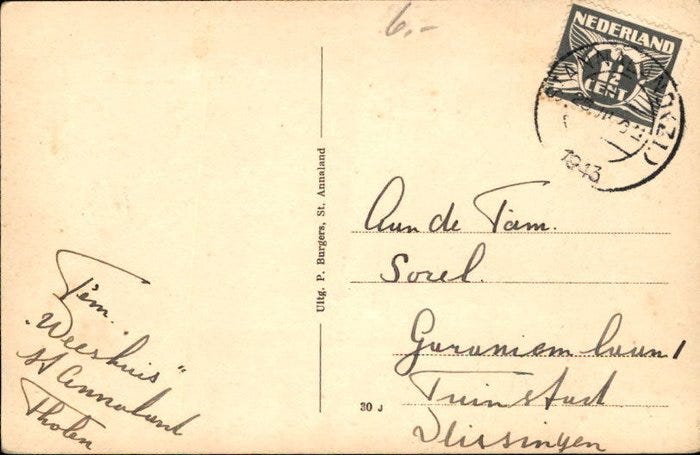 6.-
NEDERLAND
CENT
1943
Uitg. P. Burgers, St. Annaland
Aan de Fam.
Sorel.
Geraniemlaan 1
Tuinstad
Vlissingen
Fam.
"Weeshuis"
St Annaland
Tholen
30 J